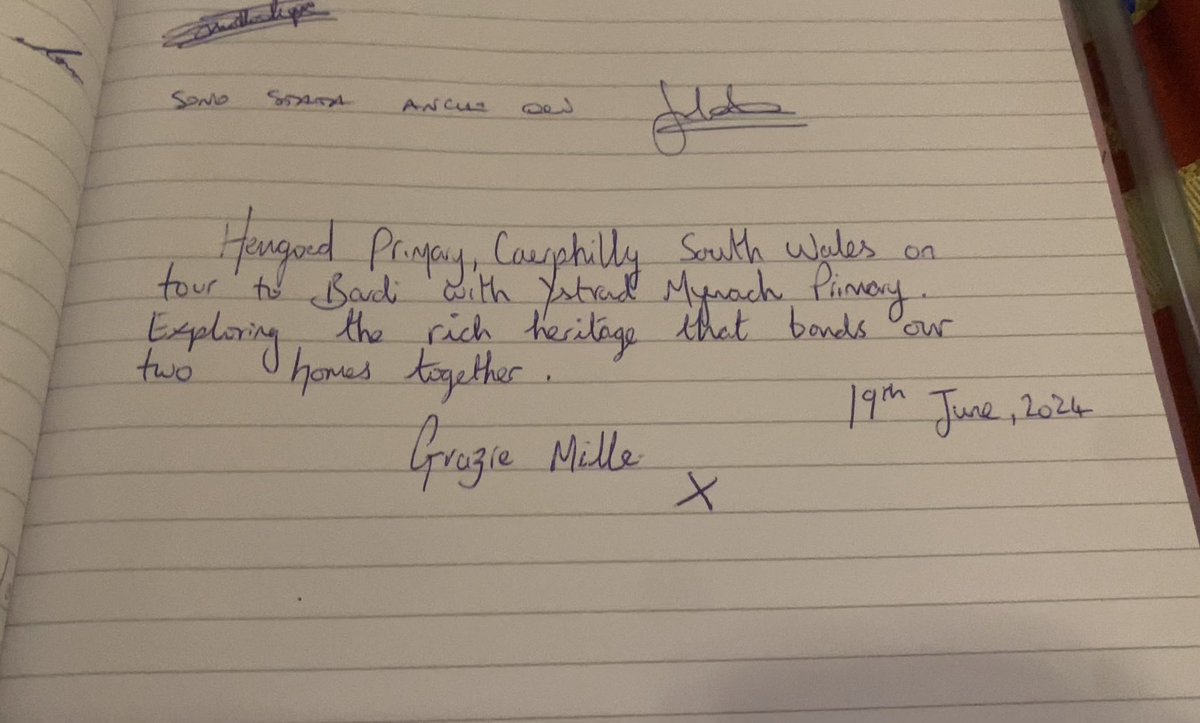 SONO STATA ANCHE
Hengoed Primary, Caerphilly South Wales on
tour to Bardi with Ystrad Mynach Primary.
Exploring the rich heritage that bonds our
two homes together.
19th June, 2024
Grazie Mille
X